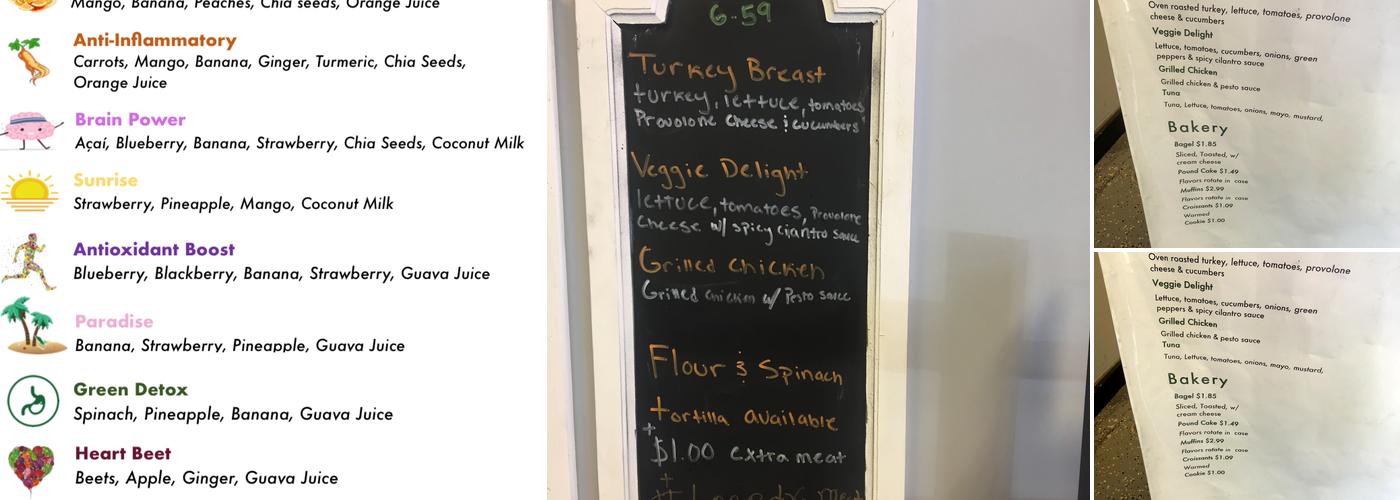 Mango, Banana, Peaches, Chia seeds, Orange Juice
Anti-Inflammatory
Carrots, Mango, Banana, Ginger, Turmeric, Chia Seeds,
Orange Juice
Brain Power
Açaí, Blueberry, Banana, Strawberry, Chia Seeds, Coconut Milk
Sunrise
Strawberry, Pineapple, Mango, Coconut Milk
Antioxidant Boost
Blueberry, Blackberry, Banana, Strawberry, Guava Juice
Paradise
Banana, Strawberry, Pineapple, Guava Juice
Green Detox
Spinach, Pineapple, Banana, Guava Juice
Heart Beet
Beets, Apple, Ginger, Guava Juice
6.59
Turkey Breast
turkey, lettuce, tomatoes
Provolone Cheese & Cucumbers
Veggie Delight
lettuce, tomatoes, Provolone
Cheese w/ spicy cilantro sauce
Grilled Chicken
Grilled chicken w/ Pesto sauce
Flour & Spinach
tortilla available
+
$1.00 extra meat
+
Oven roasted turkey, lettuce, tomatoes, provolone
cheese & cucumbers
Veggie Delight
Lettuce, tomatoes, cucumbers, onions, green
peppers & spicy cilantro sauce
Grilled Chicken
Grilled chicken & pesto sauce
Tuna
Tuna, Lettuce, tomatoes, onions, mayo, mustard,
Bakery
Bagel $1.85
Sliced, Toasted, w/
cream cheese
Pound Cake $1.49
Flavors rotate in case
Muffins $2.99
Flavors rotate in case
Croissants $1.09
Warmed
Cookie $1.00
Oven roasted turkey, lettuce, tomatoes, provolone
cheese & cucumbers
Veggie Delight
Lettuce, tomatoes, cucumbers, onions, green
peppers & spicy cilantro sauce
Grilled Chicken
Grilled chicken & pesto sauce
Tuna
Tuna, Lettuce, tomatoes, onions, mayo, mustard,
Bakery
Bagel $1.85
Sliced, Toasted, w/
cream cheese
Pound Cake $1.49
Flavors rotate in case
Muffins $2.99
Flavors rotate in case
Croissants $1.09
Warmed
Cookie $1.00